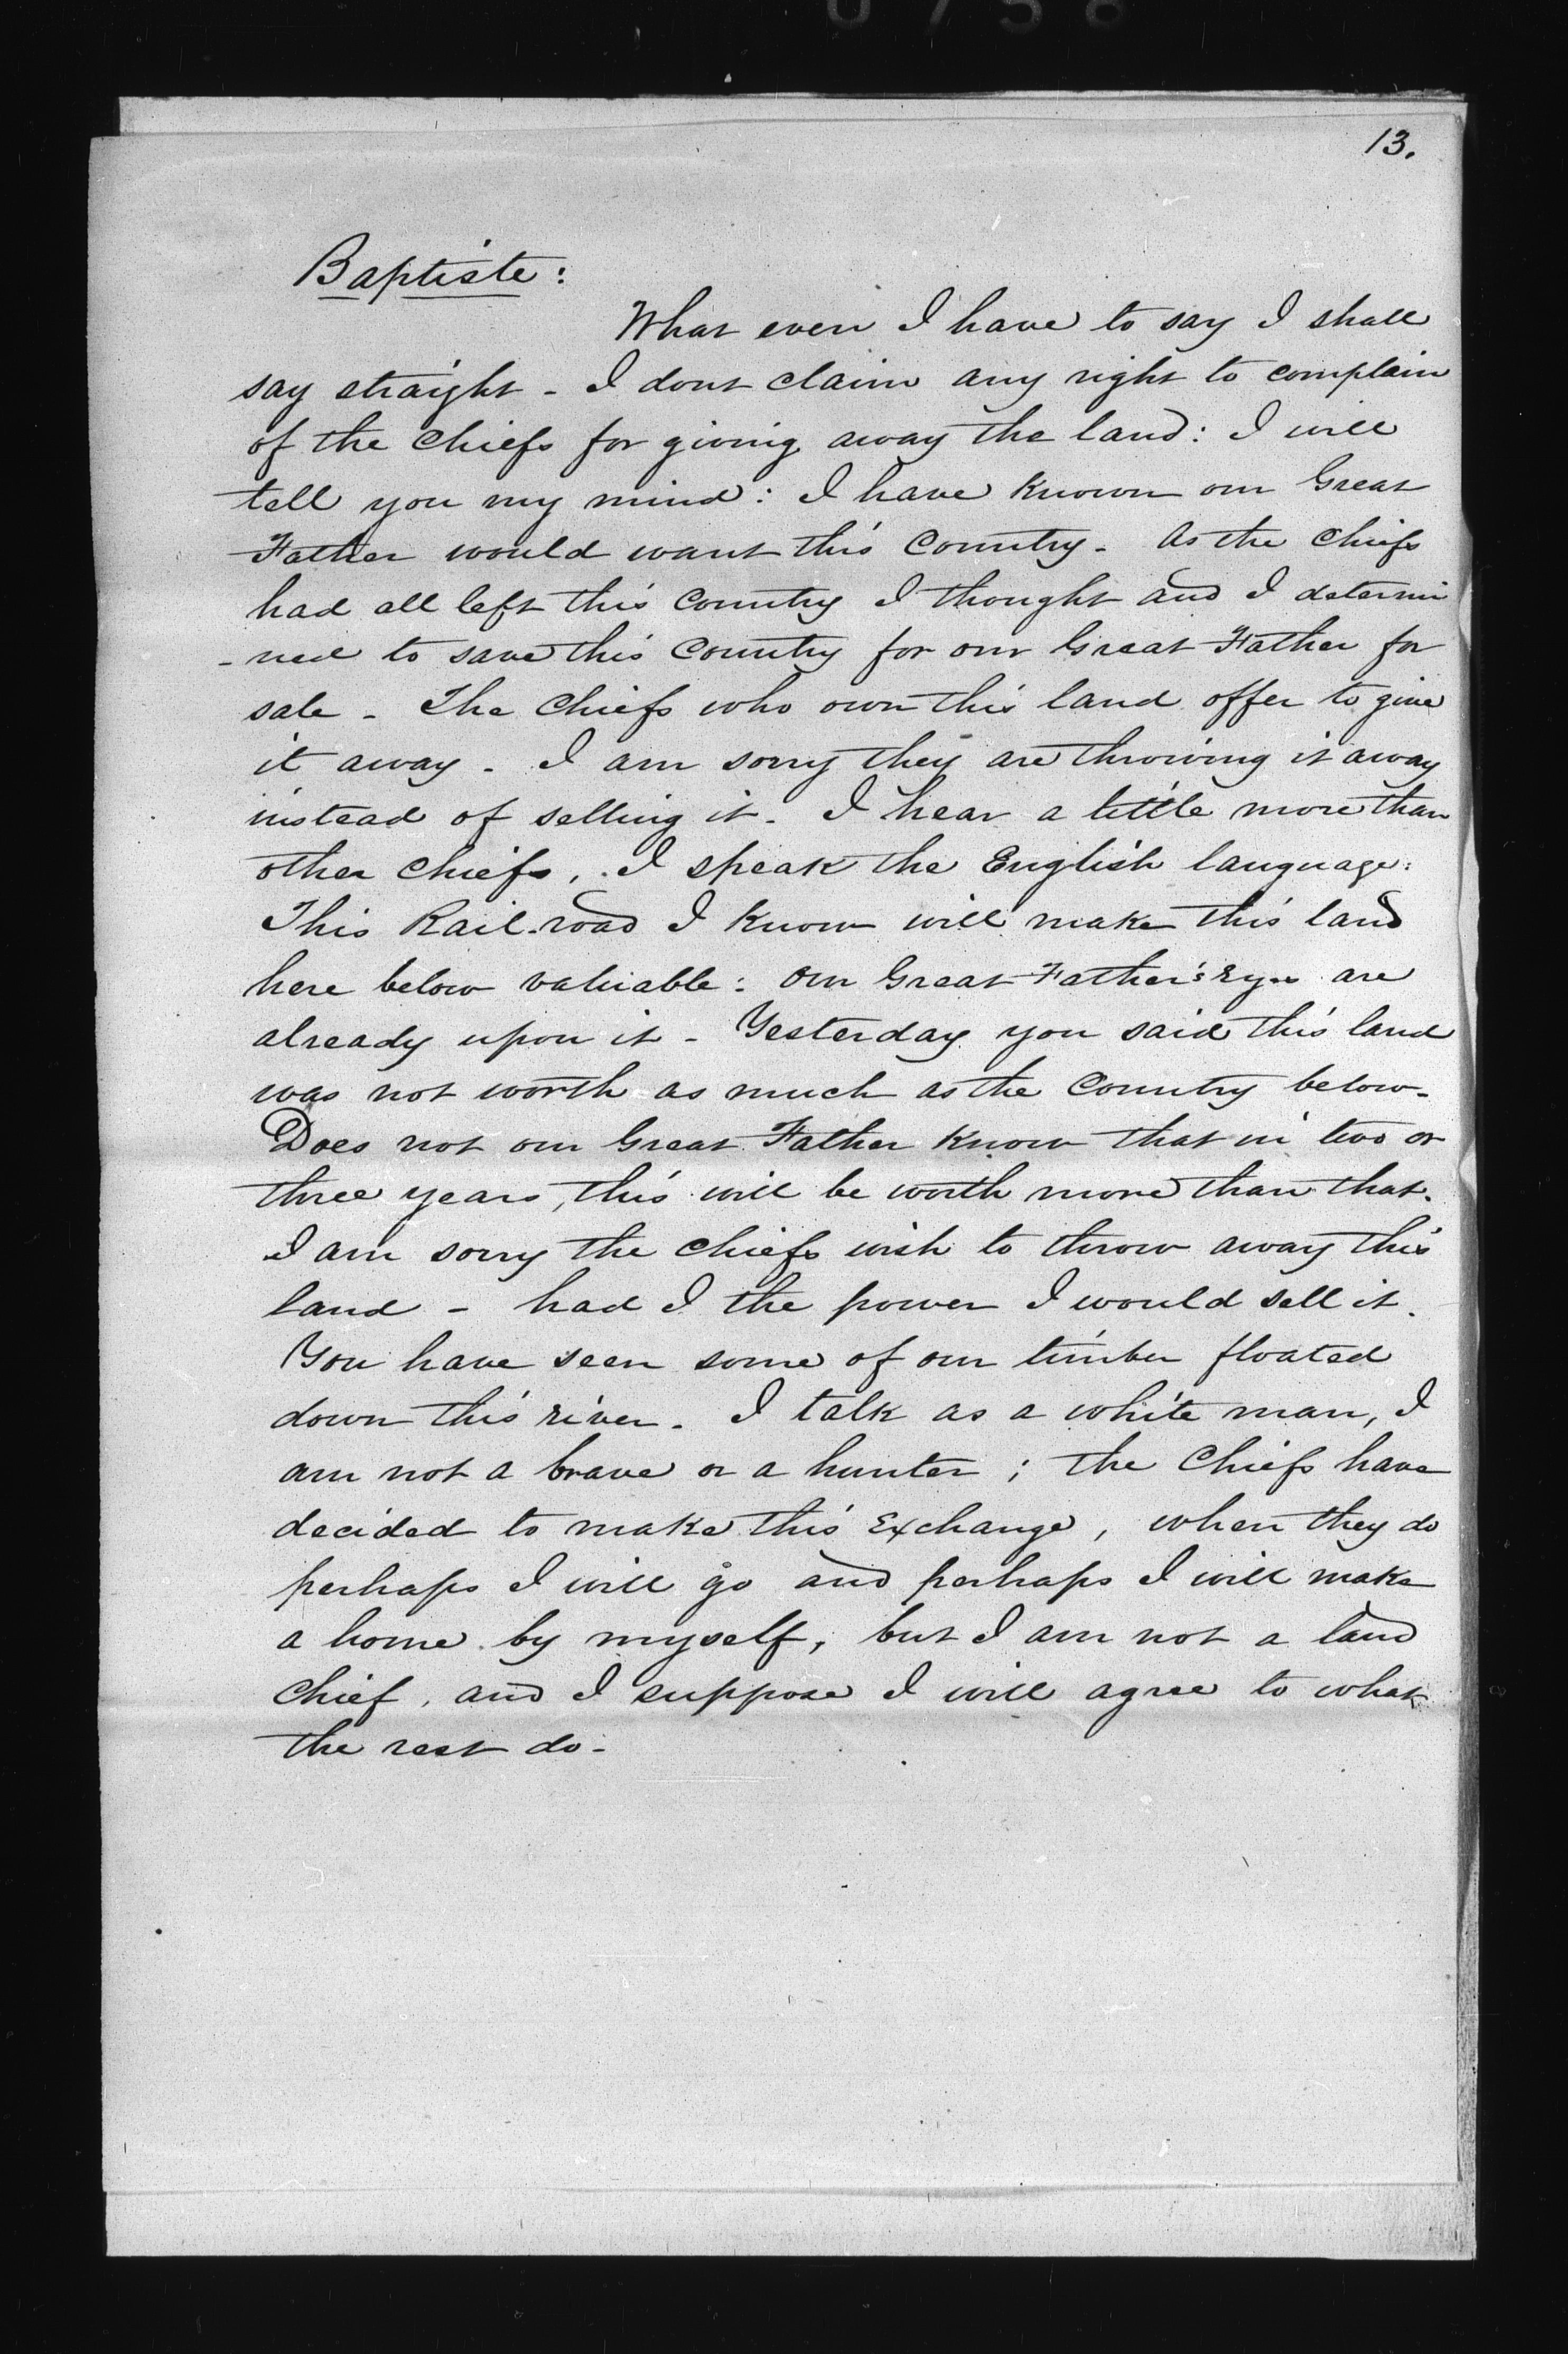 0758
13.
Baptiste:
What ever I have to say I shall
say straight - I dont claim any right to complain
of the Chiefs for giving away the land: I will
tell you my mind: I have known our Great
Father would want this Country - As the Chiefs
had all left this Country I thought and I determi
-ned to save this Country for our Great Father for
sale - The Chiefs who own this land offer to give
it away - I am sorry they are throwing it away
instead of selling it - I hear a little more than
other Chiefs, I speak the English language:
This Rail-road I know will make this land
here below valuable: Our Great Father's Eyes are
already upon it - Yesterday you said this land
was not worth as much as the Country below -
Does not our Great Father know that in two or
three years, this will be worth more than that.
I am sorry the chiefs wish to throw away this
land - had I the power I would sell it.
You have seen some of our timber floated
down this river - I talk as a white man, I
am not a brave or a hunter; the Chiefs have
decided to make this Exchange, when they do
perhaps I will go and perhaps I will make
a home by myself, but I am not a land
chief, and I suppose I will agree to what
the rest do -